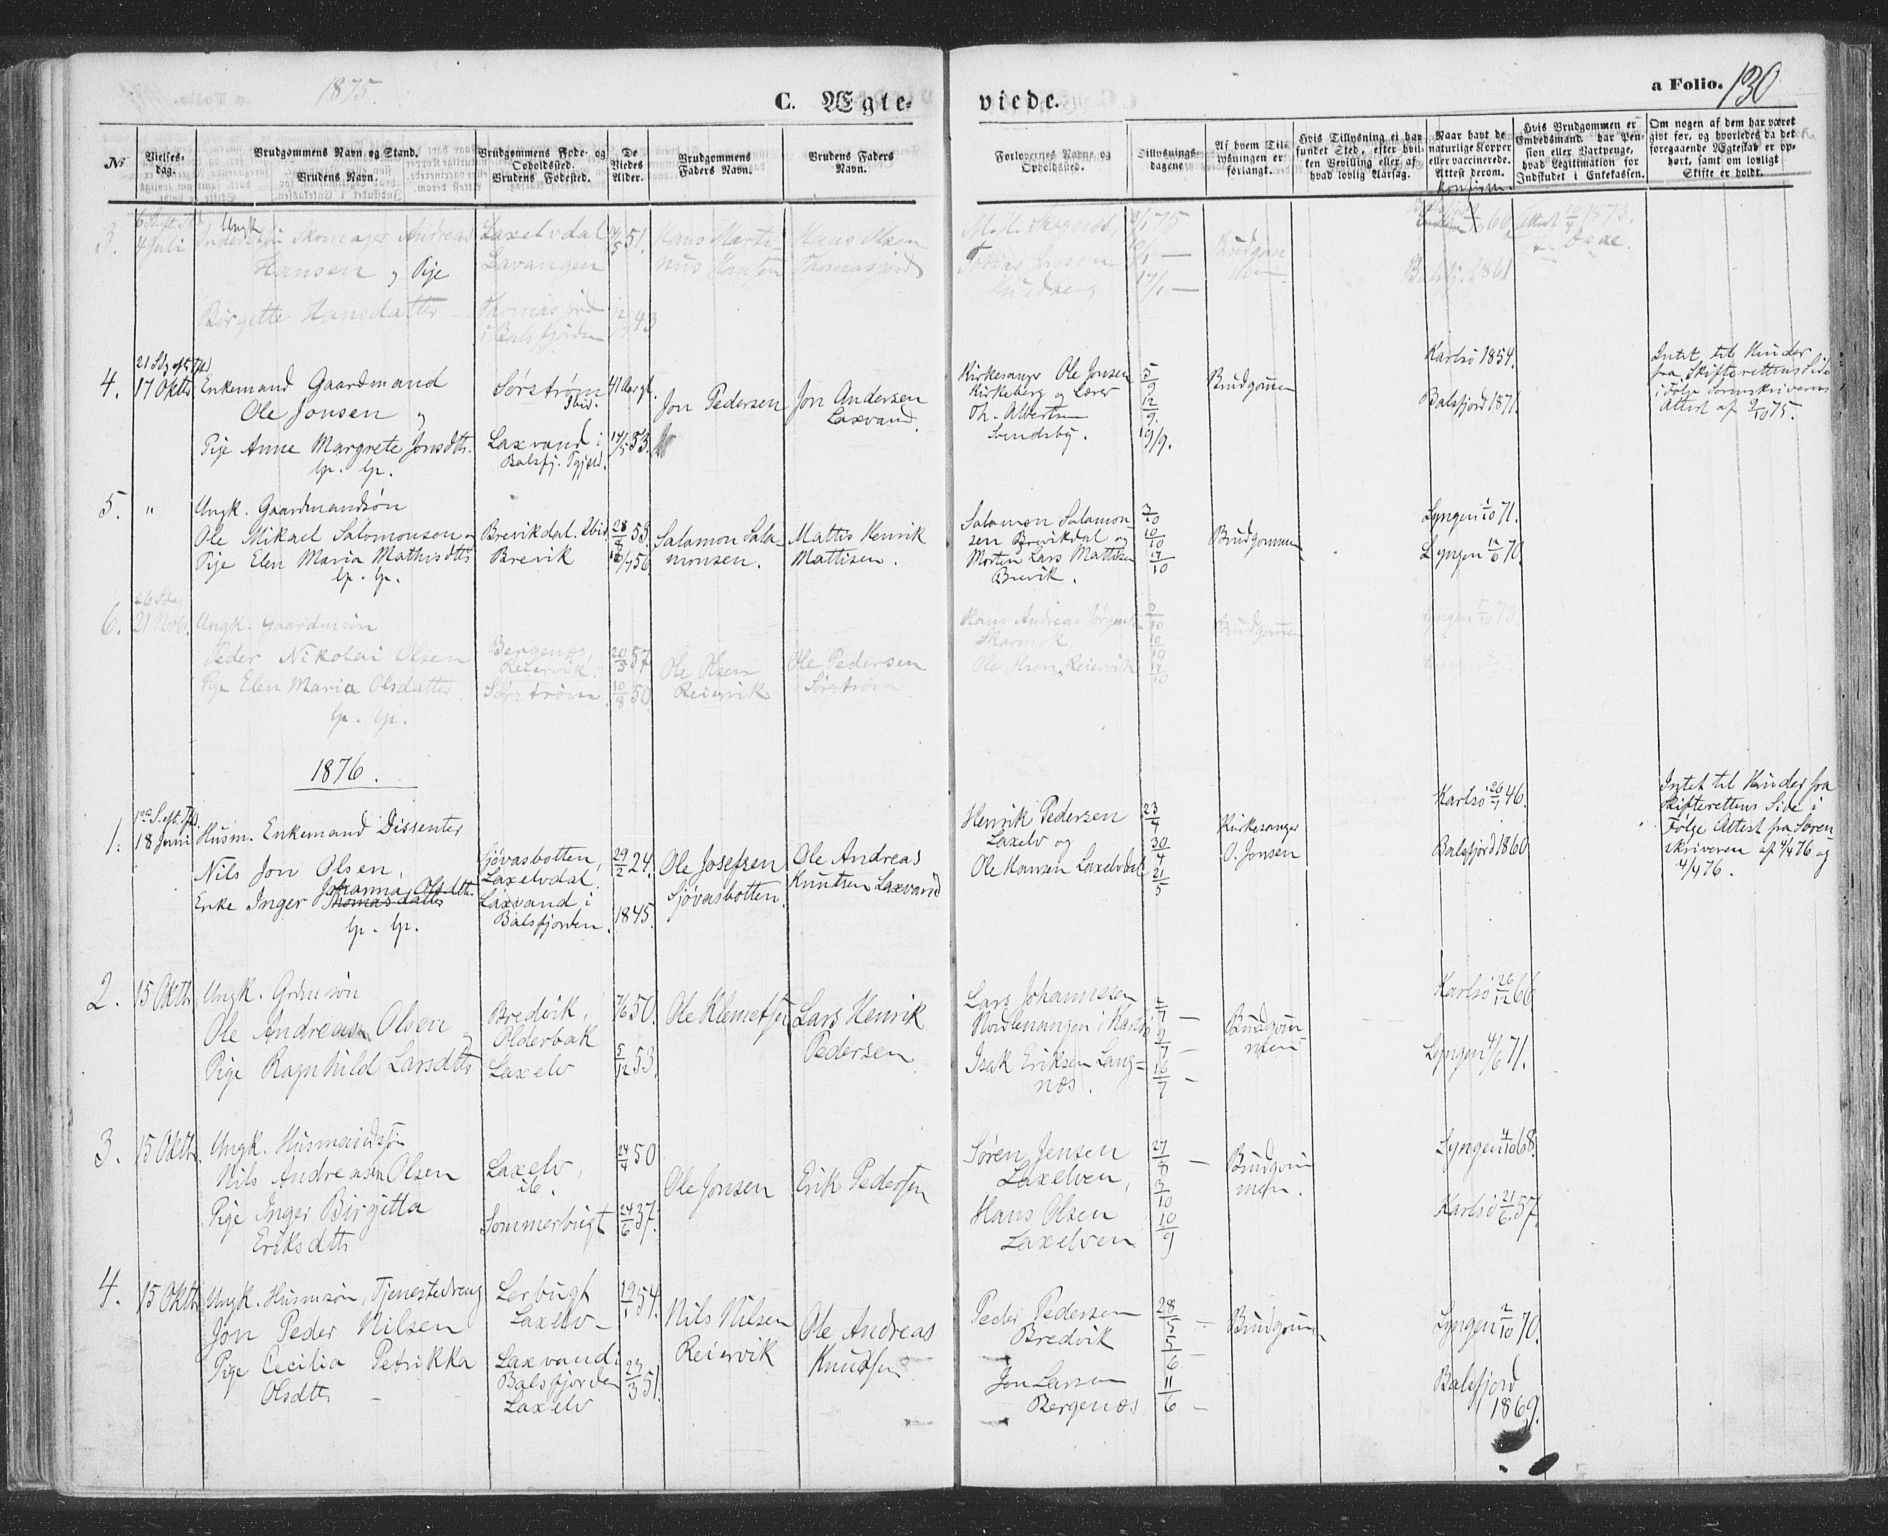 1875.
C. Ægte-
viede.
a Folio. 130
No
Vielses-
dag.
Brudgommens Navn og Stand.
Brudens Navn.
Brudgommens Føde- og
Opholdssted.
Brudens Fødested.
De
Viedes
Alder.
Brudgommens
Faders Navn.
Brudens Faders
Navn.
Forlovernes Navne og
Opholdssted.
Tillysnings-
dagene.
Af hvem Til-
lysningen er
forlangt.
Hvis Tillysning ei har
fundet Sted, efter hvil-
ken Bevilling eller af
hvad lovlig Aarsag.
Naar havt de
naturlige Kopper
eller vaccinerede.
Attest derom.
Hvis Brudgommen er
Embedsmand, har Pen-
sion eller Vartpenge,
hvad Legitimation for
Indskudet i Enkekassen.
Om nogen af dem har været
gift før, og hvorledes da det
foregaaende Ægteskab er op-
hørt, samt om lovligt
Skifte er holdt.
3.
4 Juli
Ungk.
Skomager Andreas
Hansen, Pige
Birgitte Hansdatter
Laxelvdal
Lavangen
Thomasjord
i Balsfjorden
51.
43
Hans Marti-
nus Hansen
Hans Olsen
Thomasjord
17/1 —
Brudgom-
men
Balsfj. 1861
4.
17 Oktb
Enkemand Gaardmand
Ole Jonsen og
Pige Anne Margrete Jonsdtr.
lp. lp.
Sørstrøm
Ibid.
Laxvand i
Balsfj. Pgjeld.
41 Aargl.
17/5 53.
Jon Pedersen
Jon Andersen
Laxvand.
Kirkesanger Ole Jonsen
Kirkeberg og Lærer
Th. Albertsen
Sundsby.
5/9
12/9.
19/9.
Brudgommen
Karlsø 1854.
Balsfjord 1871.
Intet til Hinder
fra Skifterettens Side
i Følge Sorenskriverens
Attest af 9/10 75.
5.
"
Ungk. Gaardmandsøn
Ole Mikael Salomonsen og
Pige Elen Maria Mathisdtr
lp. lp.
Brevikdal. Ibid
Brevik
28/8 53.
56.
Salamon Sala-
monsen.
Mattis Henrik
Mattisen.
Salamon Salamon-
sen Brevikdal og
Morten Lars Mattisen
Brevik.
3/10
10/10
17/10
Brudgommen
Lyngen 1/10 71.
Lyngen 70.
6.
26 Sdg
21 Novbr.
Ungk. Gaardmsøn
Peder Nikolai Olsen
Pige Elen Maria Olsdatter
lp. lp.
Bergenæs,
Reiervik.
Sørstrøm
20/3 57
10/8 50
Ole Olsen
Reiervik
Ole Pedersen
Sørstrøm
Hans Andreas Jørgensen
Skarmrk
Ole Olsen, Reiervik
3/10
10/10
17/10
Brudgommen
1876.
1.
18 Juni
Husm. Enkemand Dissenter
Nils Jon Olsen,
Enke Inger Johanna Olsdtr.
Thomasdatter
lp. lp.
Sjøvasbotten,
Laxelvdal.
Laxvand i
Balsfjorden.
29/2 24.
1845.
Ole Josefsen
Sjøvasbotten.
Ole Andreas
Knutsen Laxvand
Henrik Pedersen
Laxelv og
Ole Hansen Laxelvdal
23/4
30/4
21/5
Kirkesanger
O. Jonsen
Karlsø 46.
Balsfjord 1860
Intet til Hinder fra
Skifterettens Side i
Følge Attest fra Soren-
skriveren af 4/4 76 og
4/4 76.
2.
15 Oktb
Ungk. Grdmsøn
Ole Andreas Olsen,
Pige Ragnhild Larsdtr
Bredvik,
Olderbak
Laxelv
50.
5/12 53.
Ole Klemetsen
Lars Henrik
Pedersen
Lars Johannesen
Nordlenangen i Karlsø
Isak Eriksen Lang=
næs.
2/7 —
9/7 —
16/7 —
Brudgom
men
Karlsø 26/12 66
Lyngen 4/6 71.
3.
15 Oktb.
Ungk. Husmandsøn
Nils Andreasen Olsen
Pige Inger Birgitta
Eriksdtr
Laxelv,
ib.
Sommerbugt
24/4 50
24/6 37.
Ole Jonsen
Erik Pedersen
Søren Jensen
Laxelven,
Hans Olsen
Laxelven
27/8 —
3/10
10/9
Brudgom
men.
Lyngen 4/10 68.
Karlsø 21/6 57.
4.
15 Oktb
Ungk. Husmsøn, Tjenestedreng
Jon Peder Nilsen
Pige Cecilia Petrikka
Olsdtr —
Lerbugt
Laxelv —
Laxvand i
Balsfjorden
Laxelv
19/1 54.
23/3 51.
Nils Nilsen
Reiervik
Ole Andreas
Knudsen
Peder Pedersen
Bredvik
Jon Larsen
Bergenæs
28/5 —
5/6
11/6 —
Brudgom.
Lyngen 2/10 70.
Balsfjord
1869.